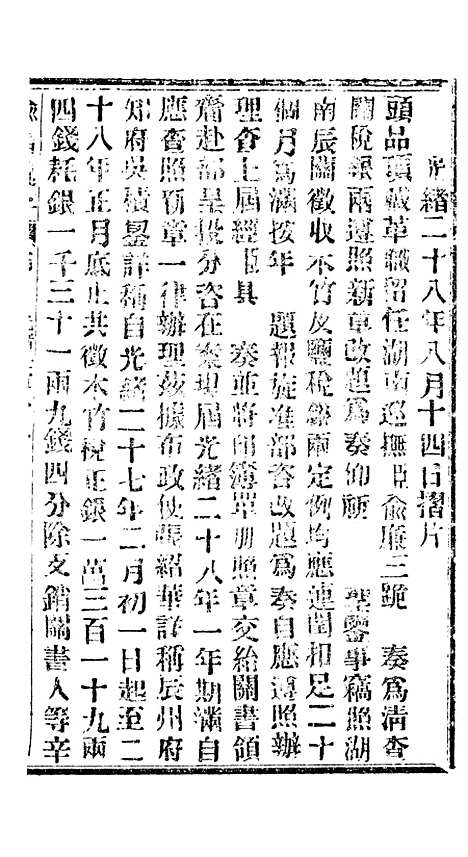 光緒二十八年八月十四日摺片
頭品頂戴革職留任湖南巡撫臣俞廉三跪 奏爲淸查
關稅銀兩遵照新章改題爲奏仰祈 聖鑒事竊照湖
南辰關徵收木竹及鹽稅銀兩定例均應連閏扣足二十
個月爲滿按年 題報旋准部咨改題爲奏自應遵照辦
理查上屆經臣具 奏並將印簿單册照章交給關書領
齎赴部呈投分咨在案現屆光緒二十八年一年期滿自
應查照新章一律辦理茲據布政使張紹華詳稱辰州府
知府吳積鋆詳稱自光緒二十七年二月初一日起至二
十八年正月底止共徵木竹稅正銀一萬三百一十九兩
四錢耗銀一千三十一兩九錢四分除支銷關書人等辛